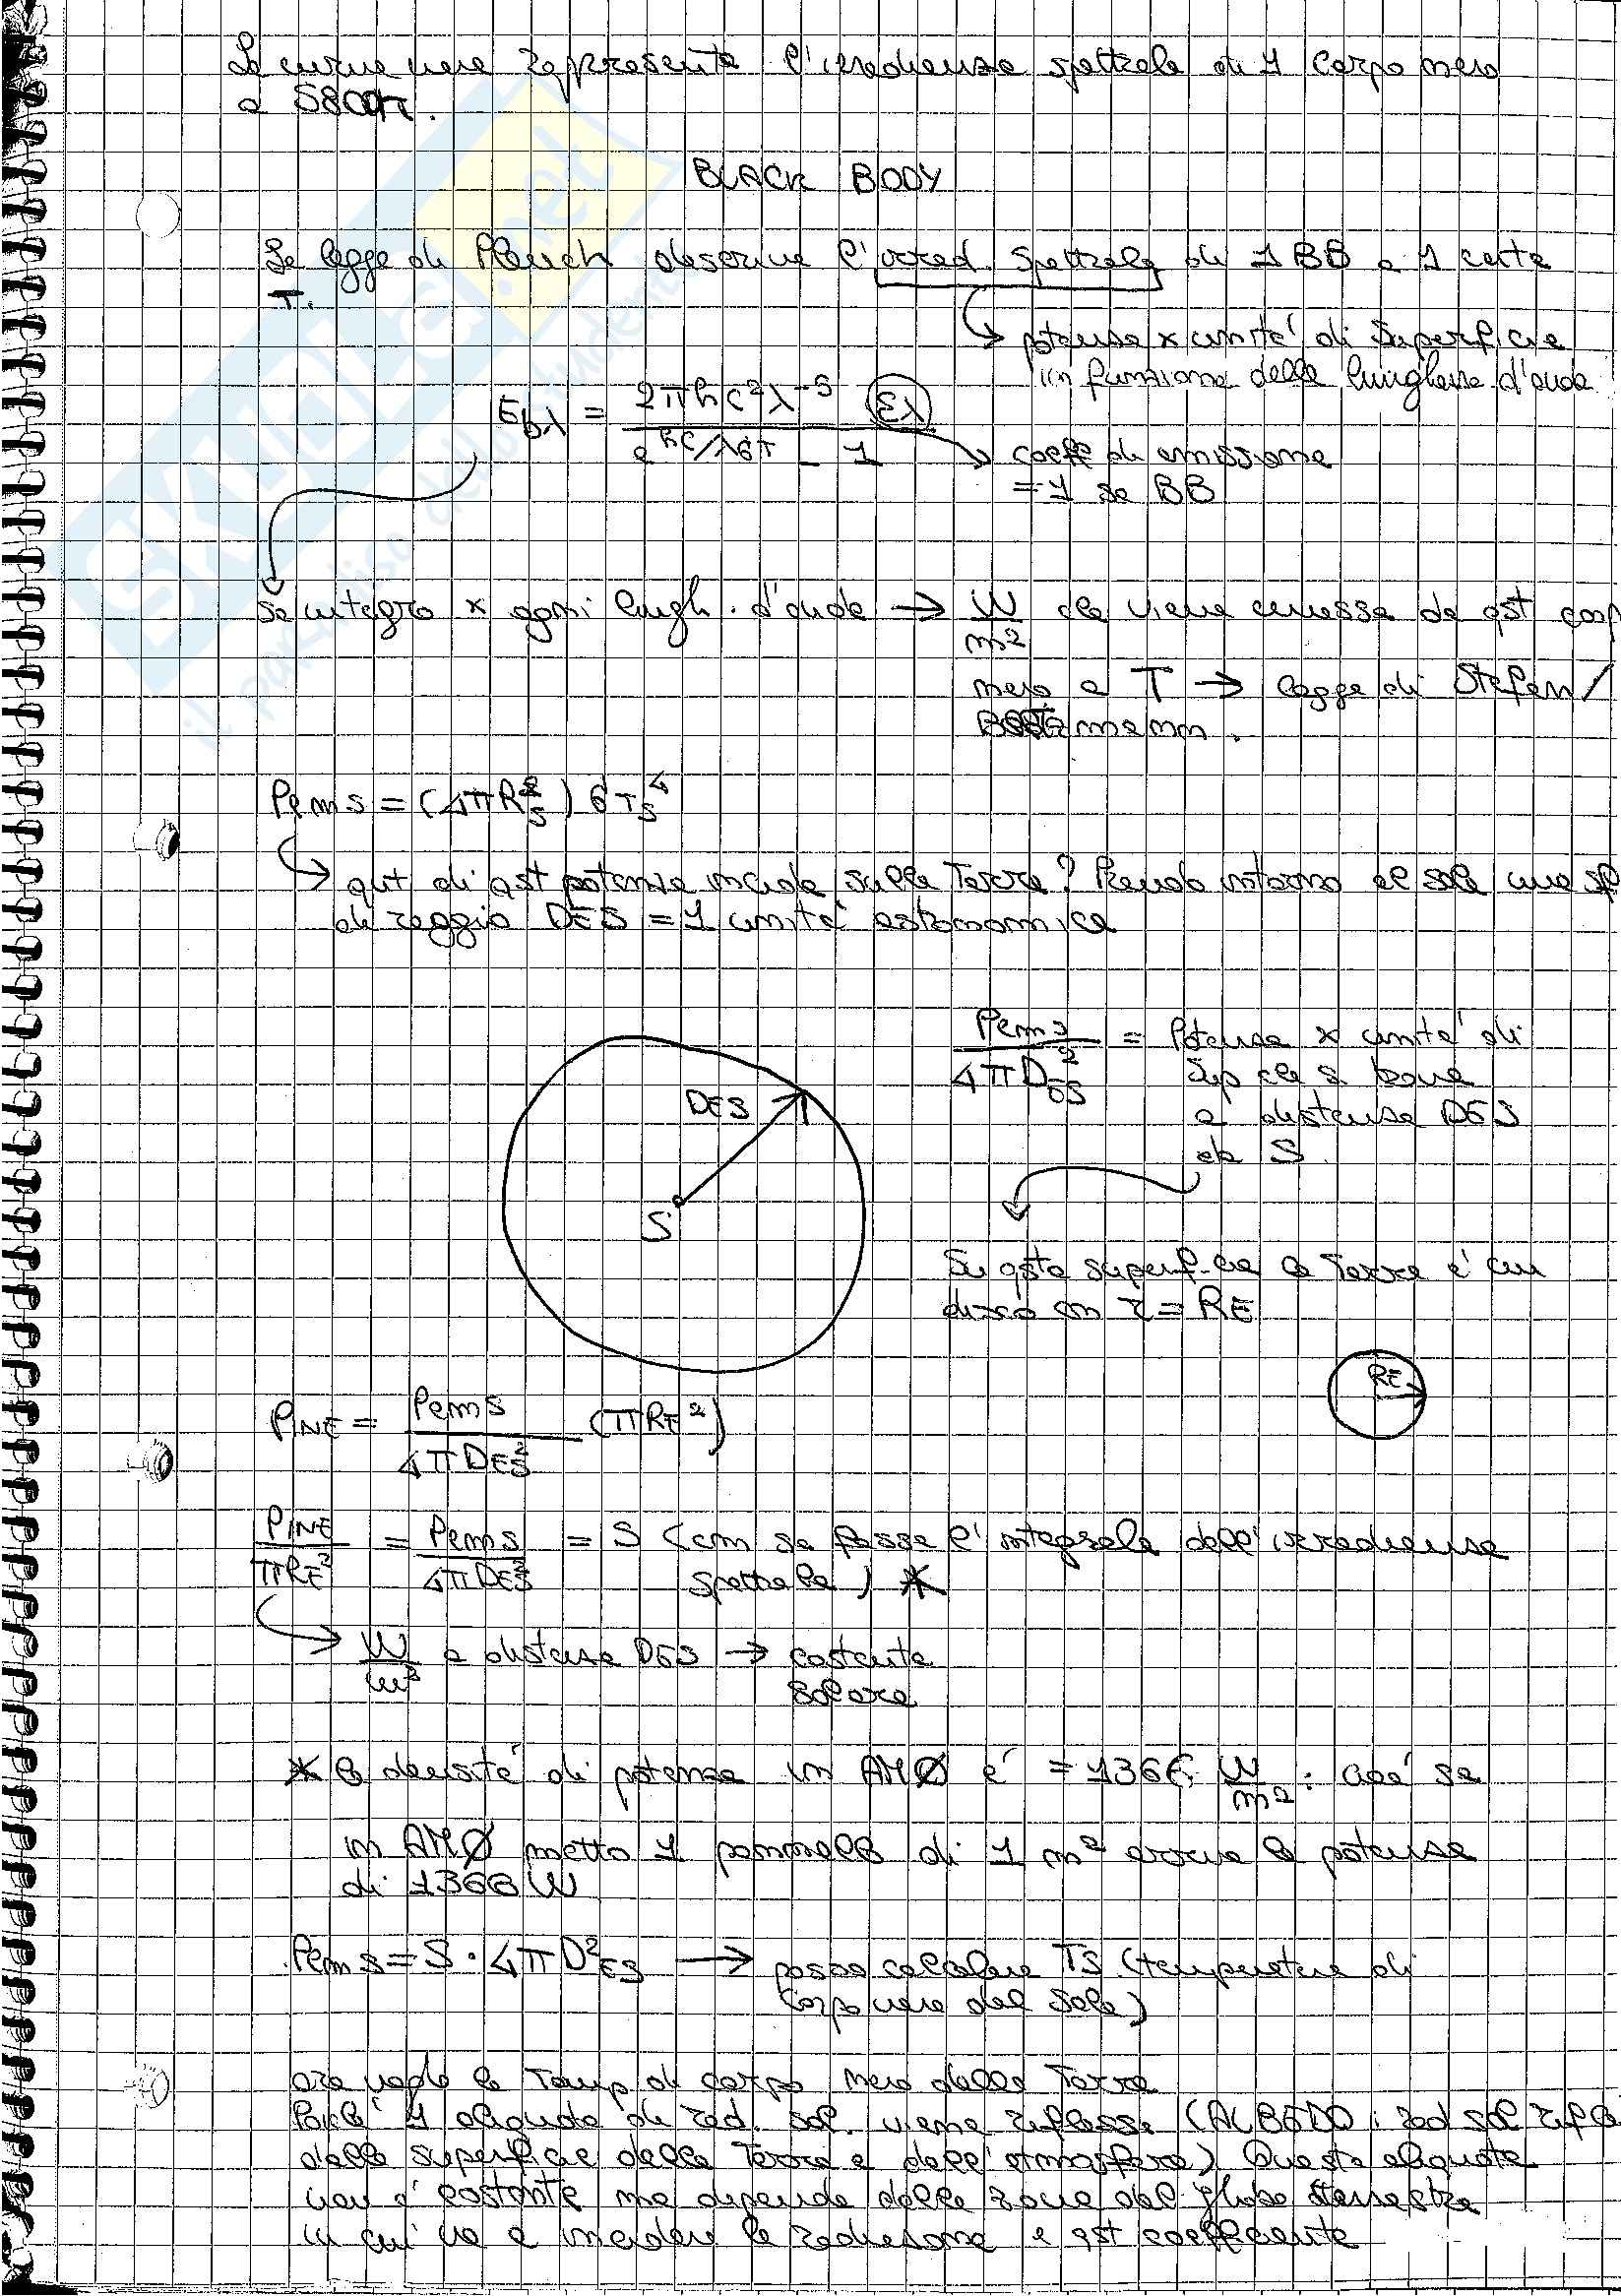 La curva nera rappresenta l'irradianza spettrale di 1 corpo nero
a 5800K.
BLACK BODY
La legge di Planck descrive l'irrad. spettrale di 1 BB a 1 certa
T.
potenza x unità di superficie
in funzione della lunghezza d'onda
Ebλ = 2πhc²λ⁻⁵ ελ / e^hc/λσT - 1
coeff di emissione
= 1 se BB
se integro x ogni lungh. d'onda → W/m² che viene emessa da qst corp
nero a T → legge di Stefan/
Boltzmann.
Pems = (4πRs²) σTs⁴
qnt di qst potenza incide sulla Terra? Prendo intorno al sole una sf
di raggio DES = 1 unità astronomica
Pems / 4πDES² = Potenza x unità di
sup che si trova
a distanza DES
da S.
DES
S
Su qsta superficie la Terra è un
disco con r = RE
RE
PINE = Pems / 4πDES² (πRE²)
PINE / πRE² = Pems / 4πDES² = S (com se fosse l'integrale dell'irradianza
spettrale) *
W/m² a distanza DES → costante
solare
* la densità di potenza in AMØ è = 1366 W/m² : cioè se
in AMØ metto 1 pannello di 1 m² arriva la potenza
di 1366 W
Pems = S · 4πD²ES → posso calcolare TS (temperatura di
corpo nero del Sole)
ora vedo la Temp di corpo nero della Terra
Poiché 1 aliquota di rad. sol. viene riflessa (ALBEDO: rad sol rifle
dalla superficie della Terra e dall'atmosfera) Questa aliquota
non è costante ma dipende dalla zona del globo terrestre
in cui va a incidere la radiazione e qst coefficiente
skuola.net
il paradiso dello studente